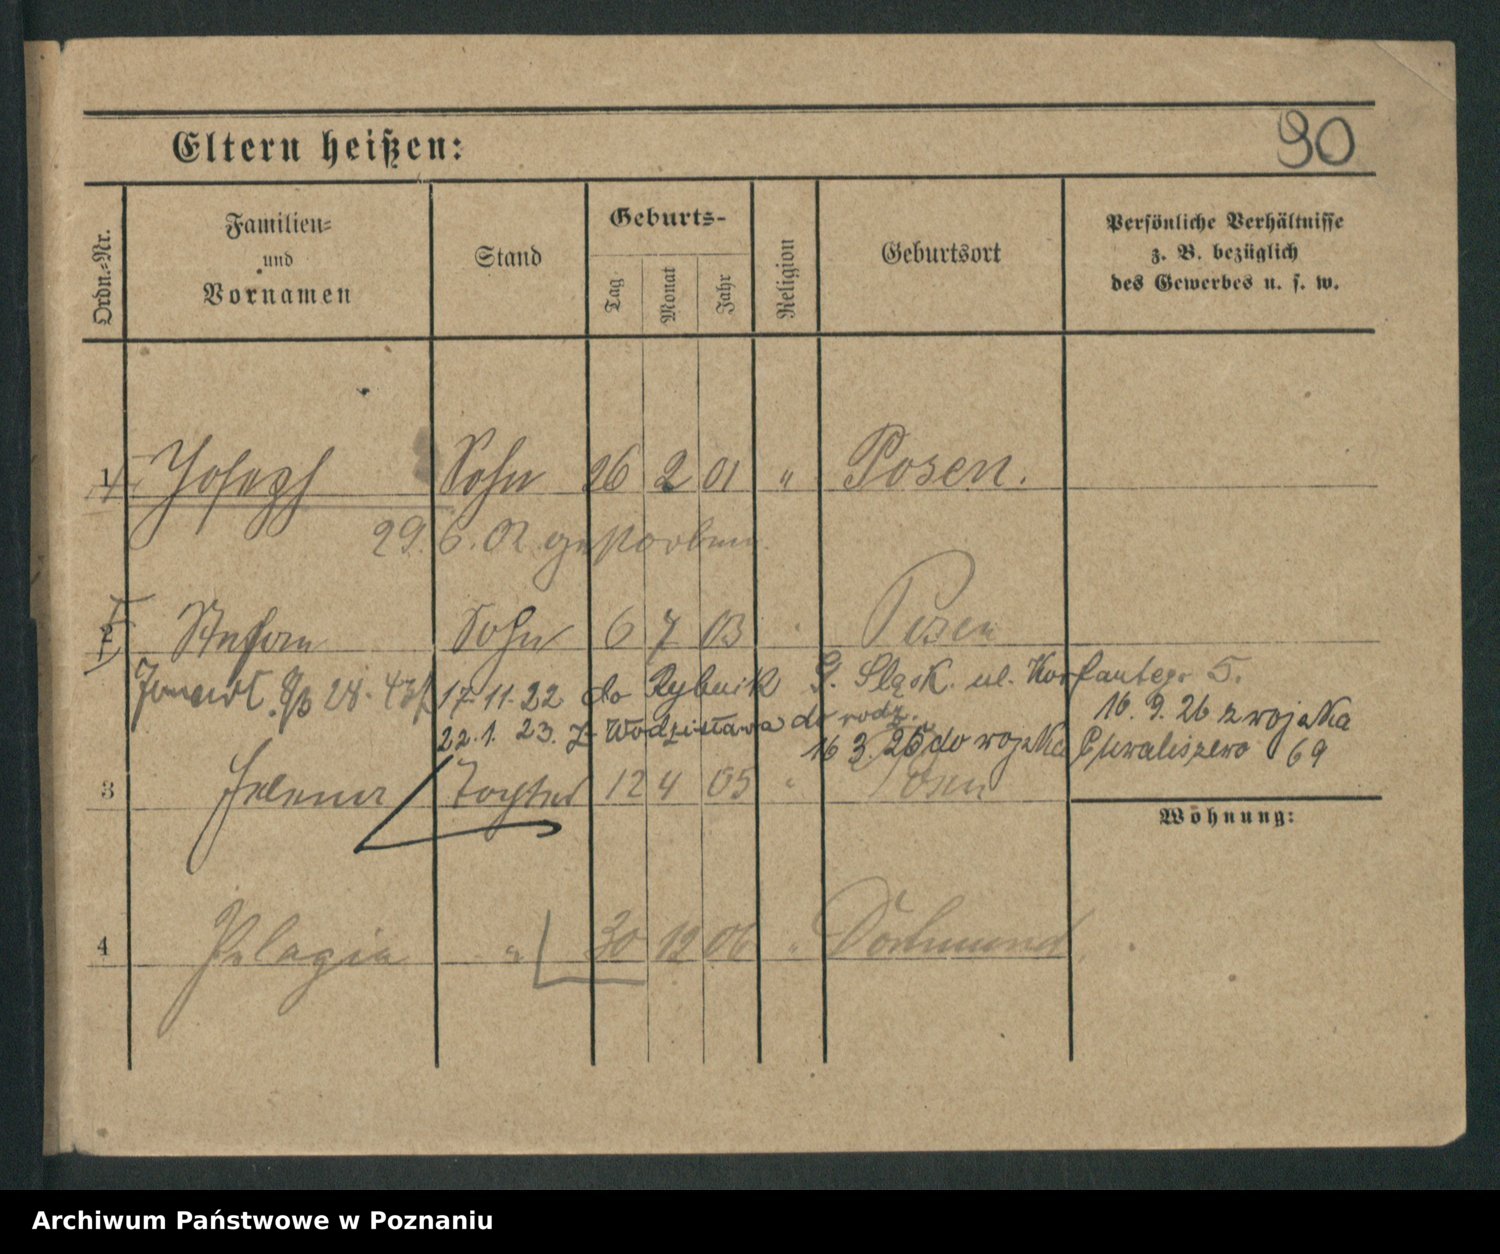 Eltern heißen:
90
Ordn.-Nr.
Familien-
und
Vornamen
Stand
Geburts-
Tag
Monat
Jahr
Religion
Geburtsort
Persönliche Verhältnisse
z. B. bezüglich
des Gewerbes u. s. w.
1 Joseph Sohn 26 2 01 " Posen.
29. 6. 02 gestorben.
2 Stefan Sohn 6 7 03 " Posen
17.11.22 do Rybnik G. Śląsk. ul. Korfantego 5.
22.1.23. z Wodzisława do rodz.
16.9.26 z wojska
16 3. 25 do wojska 69
3 Helena Tochter 12 4 05 " Posen
Wohnung:
4 Pelagia " 30 12 06 " Dortmund
Archiwum Państwowe w Poznaniu